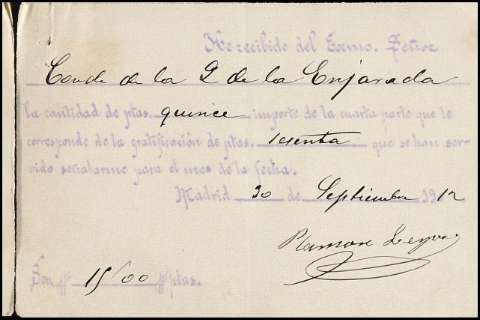 He recibido del Excmo. Señor
Conde de la Q de la Enjarada
la cantidad de ptas. quince importe de la cuarta parte que le
corresponde de la gratificación de ptas. sesenta que se han ser-
vido señalarme para el mes de la fecha.
Madrid 30 de Septiembre 1912
Ramon
Son 15/00 ptas.